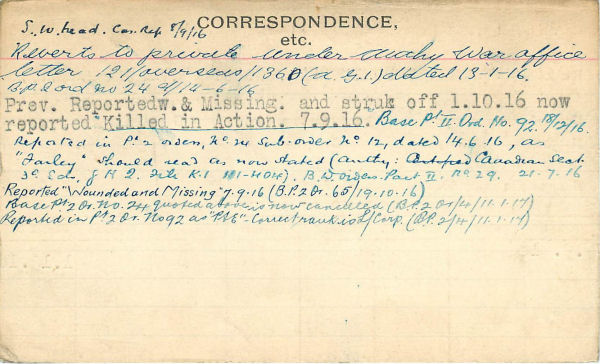 S. W. head. Cas. Rep. 8/9/16
CORRESPONDENCE,
etc.
Reverts to private under authy War office
letter 121/overseas/1360 (A.G.1) dated 13-1-16.
B.P.2 ord no 24 d/14-6-16
Prev. Reported w. & Missing. and struk off 1.10.16 now
reported "Killed in Action. 7.9.16." Base Pt II Ord. No. 92 18/12/16.
Reported in Pt 2 orders, No 24 Sub-order No 12, dated 14.6.16, as
"Farley" should read as now stated (Authy: Canadian Sect
3d Ech. G H Q. File K.1 111-4012). B.W. orders. Part II. No 29. 21-7-16
Reported "Wounded and Missing" 7-9-16 (B.P.2 Or. 65/19.10.16)
Base Pt 2 Or. No. 24 quoted above is now cancelled (B.P.2 Or/4/11-1-17)
Reported in Pt 2 Or. No 92 as "Pte" - Correct rank is L/Corp. (B.P. 2/4/11-1-17)